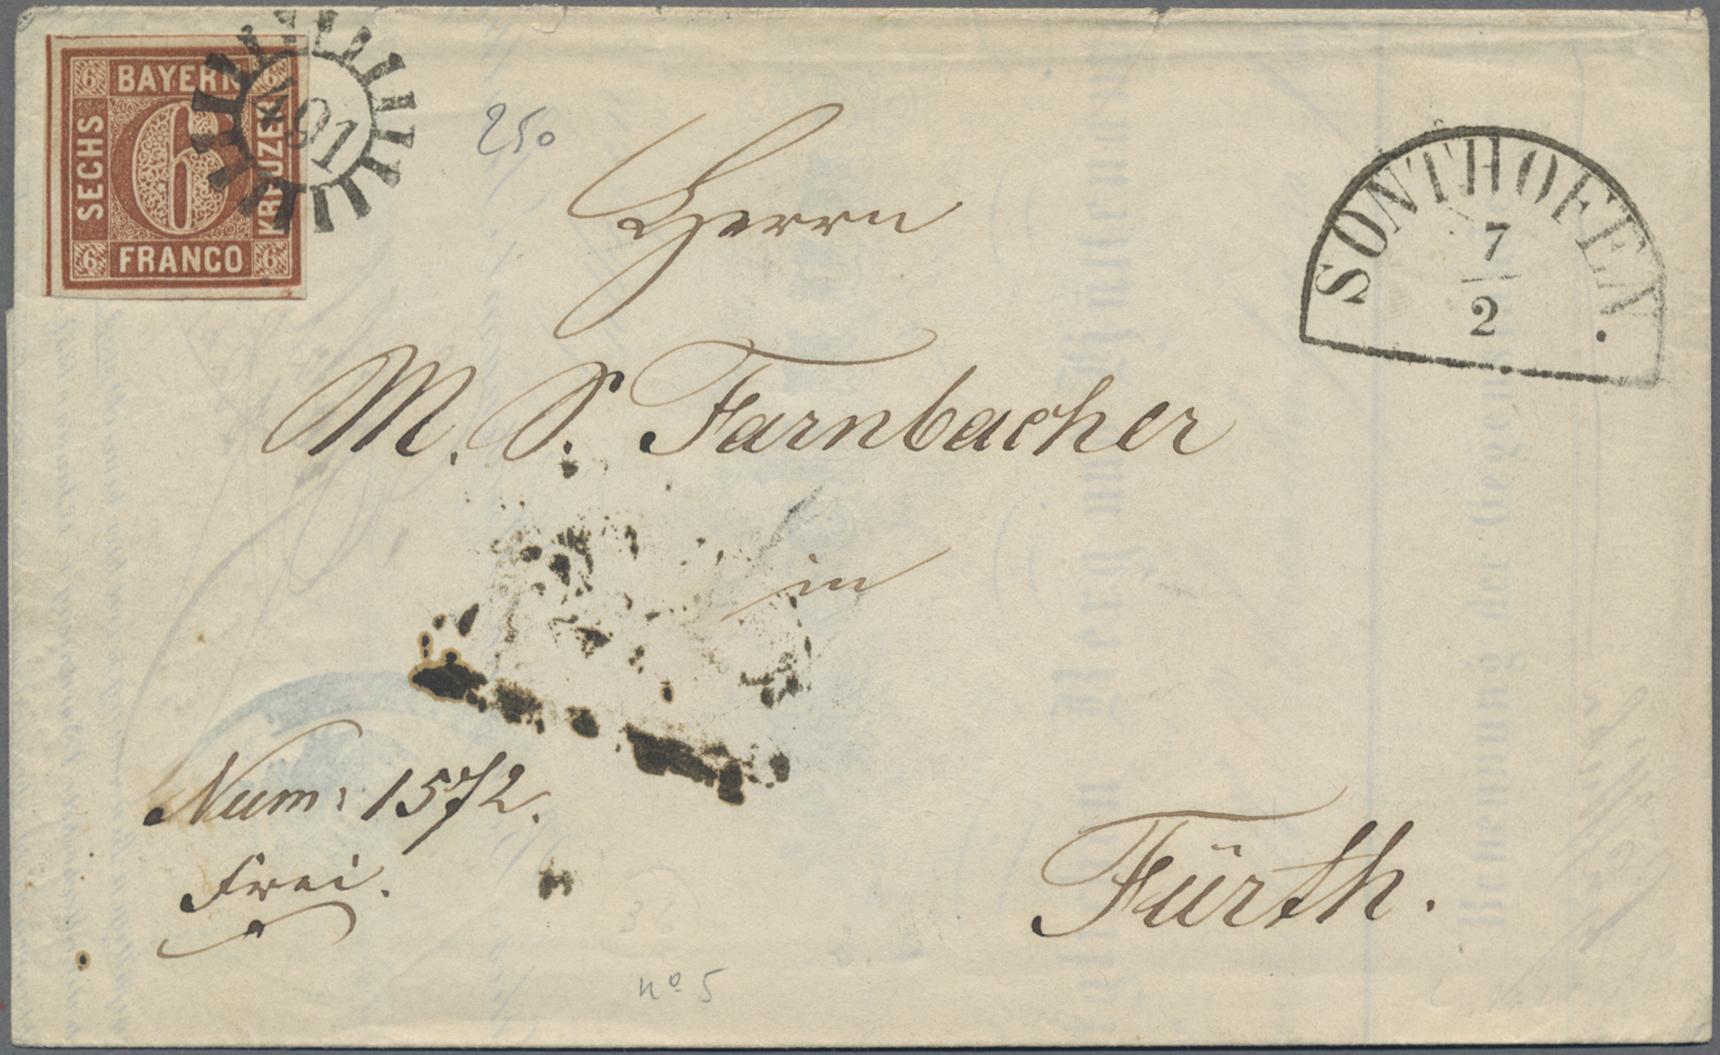 6 BAYERN 6
SECHS
6
KREUZER
6 FRANCO 6
*91
250
SONTHOFEN.
7
2
Herrn
M. S. Farnbacher
in
Num: 1572.
Frei.
Fürth.
no 5